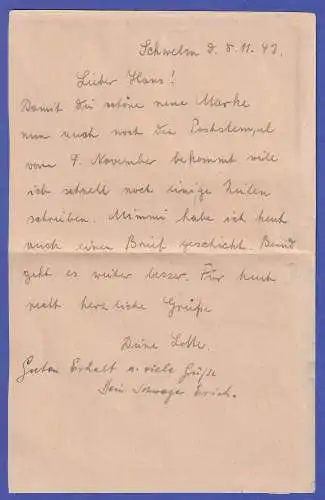 Schwelm d. 8.11.43.
Lieber Hans!
Damit die schöne neue Marke
nun auch noch den Poststempel
vom 9. November bekommt will
ich schnell noch einige Zeilen
schreiben. Mimmi habe ich heut
auch einen Brief geschickt. Bernd
geht es weiter besser. Für heut
recht herzliche Grüße
Deine Lotte.
Guten Erhalt u. viele Grüße
Dein Schwager Erich.